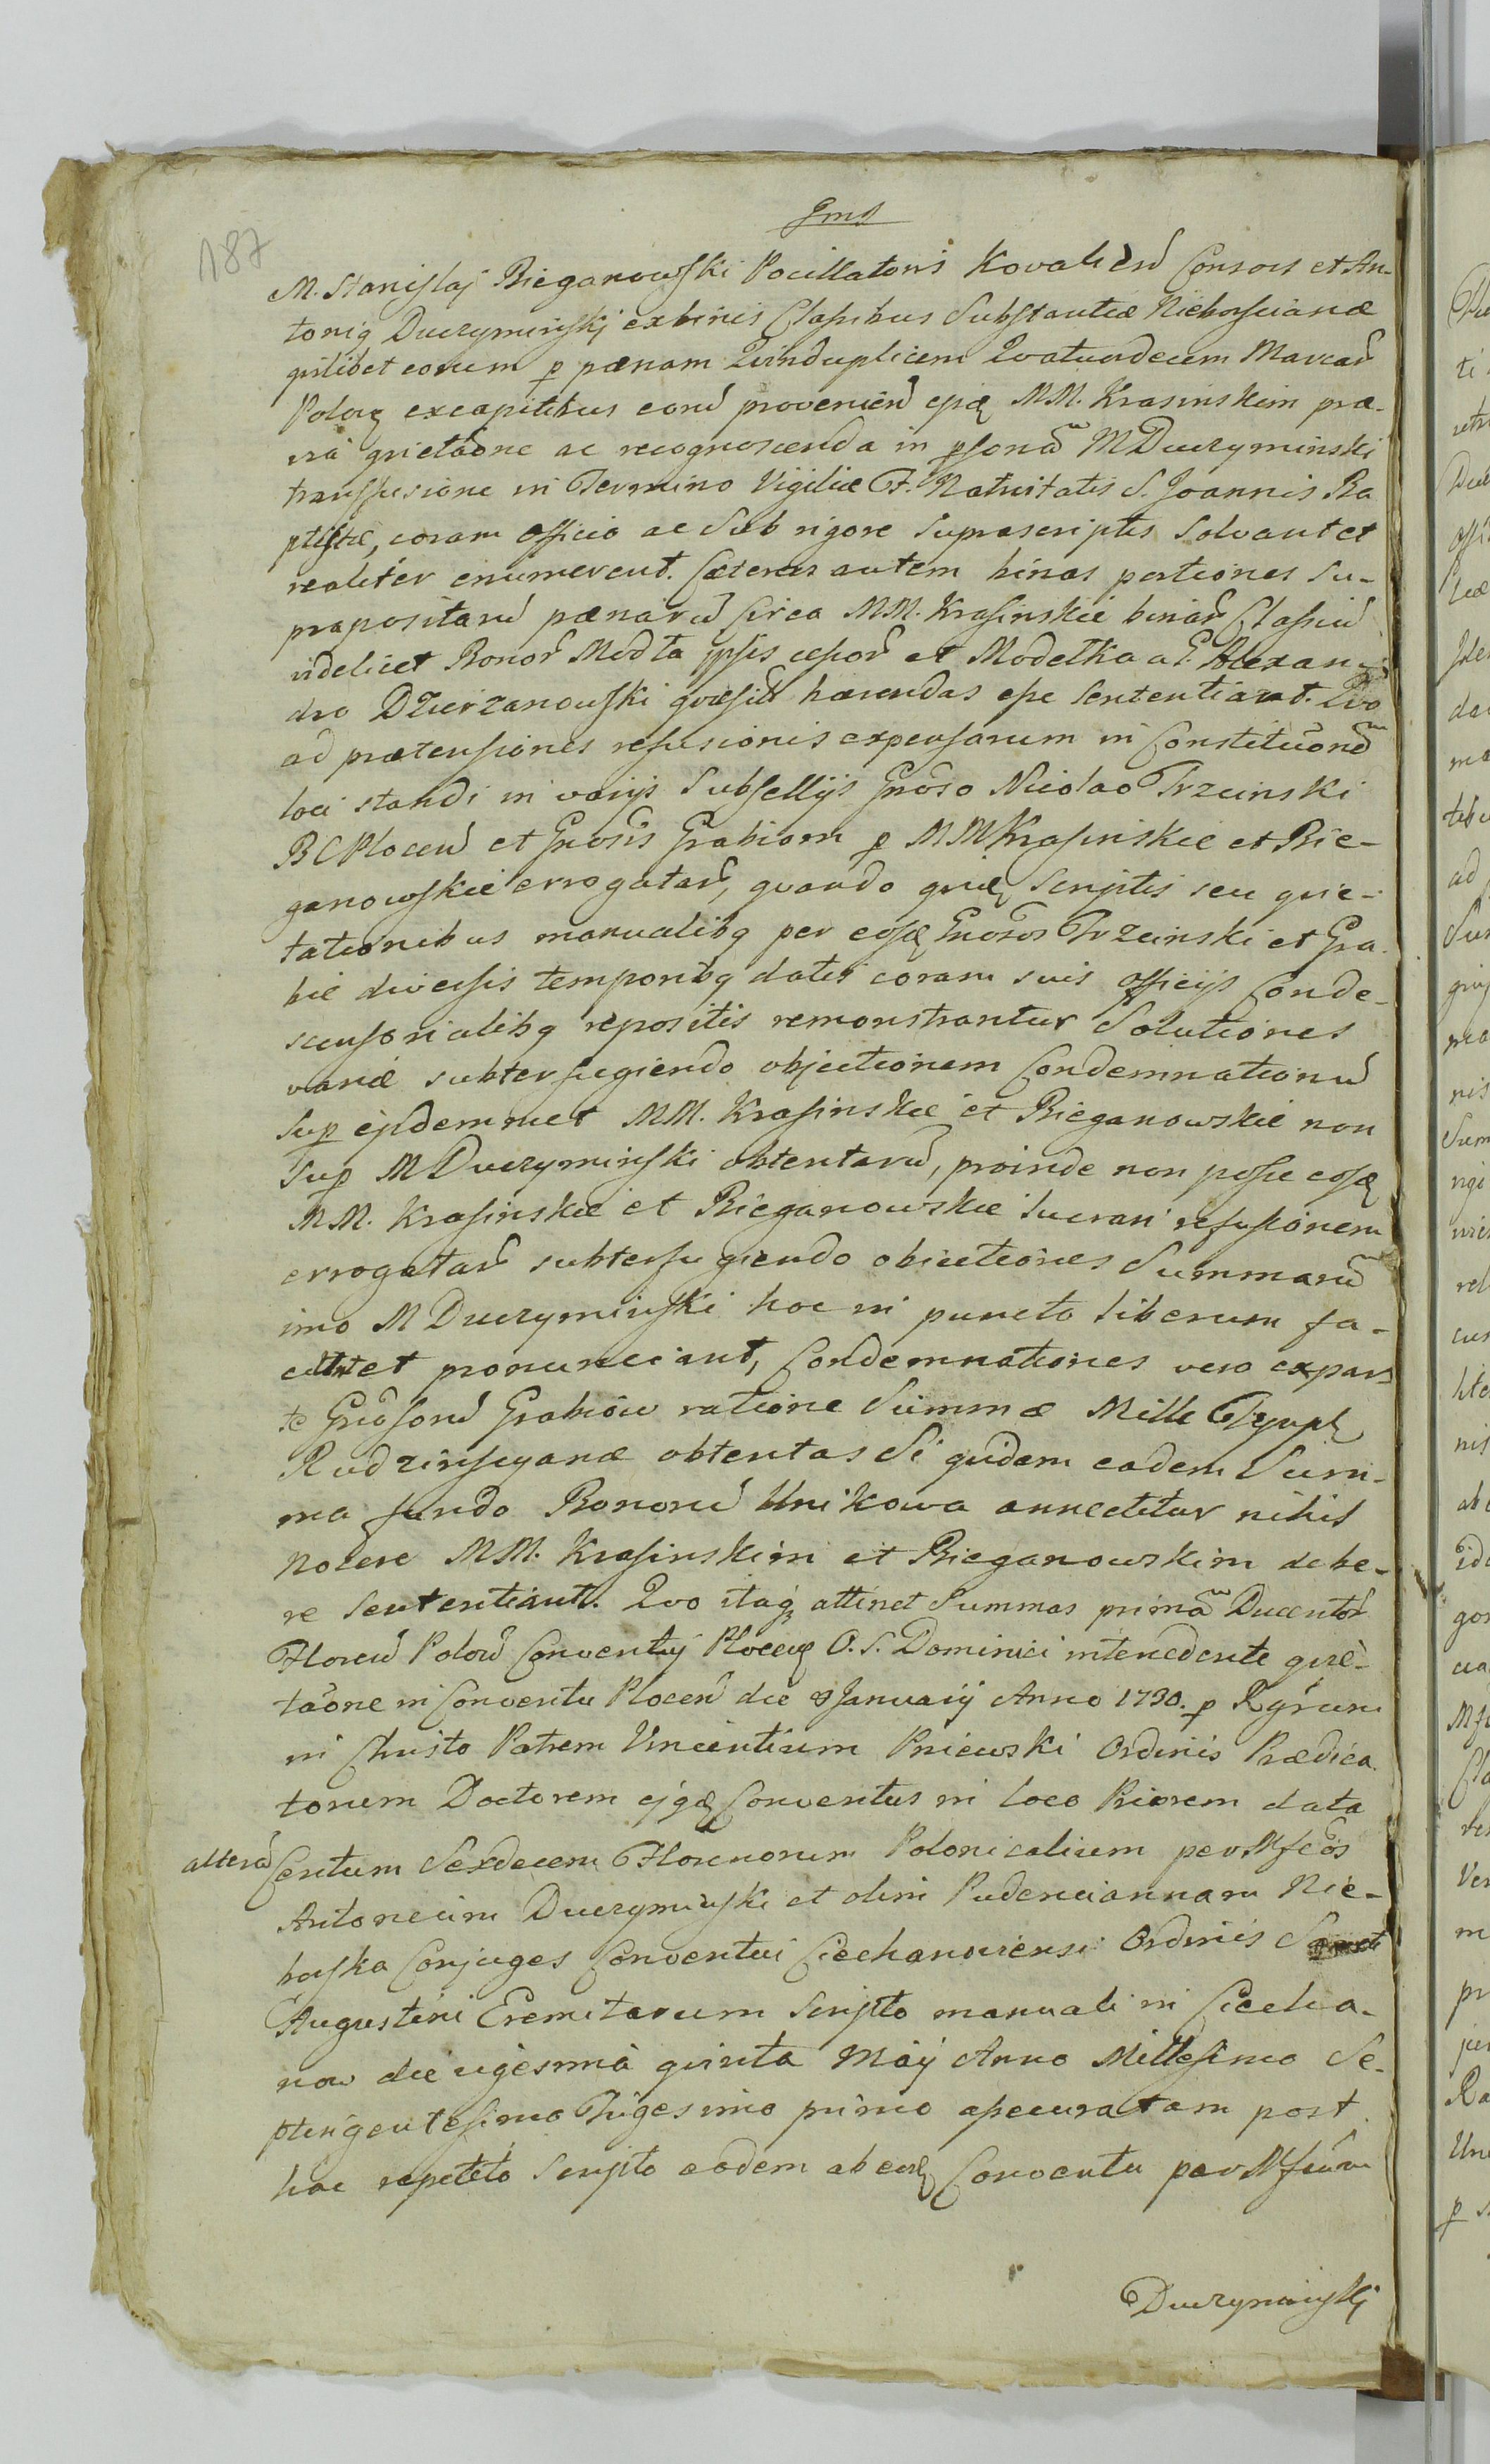 187
M. Stanislaj Bieganowski Pocillatoris Kovalien Consors et An-
tonig Duczyminskj ex binis Classibus Substantiæ Nieborscianæ
qvilibet eorum p pænam Qvinduplicem Qvatuordecem Marcar
Polon ex capitibus eorud provenien ipsis MM. Krasinskim præ-
via qvietaone ac recognoscenda in psona M Duczyminski
transfusione in Termino Vigiliæ F. Nativitatis S. Joannis Ba
ptistæ, coram officio ac sub rigore suprascriptis solvant et
realiter enumerent. Cæteras autem binas portiones su-
prapositaru pænaru circa MM. Krasinskie binar Classiu
videlicet Bonor Modła ipsis cessor et Modełka a G. Alexan-
dro Dzierzanowski qvæsit hærendas esse sententiant. Qvo
ad prætensiones refusionis expensarum in Constitutione
loci standi in varijs Subsellijs Gnoso Nicolao Trzcinski
B C Plocen et Gnosis Grabiom p MM Krasinskie et Bie-
ganowskie errogatar, qvando qvidem scriptis seu qvie-
tationibus manualibq per eosdem Gnosos Trzcinski et Gra-
bie diversis temporibq datis coram suis officijs Conde-
scensorialibq repositis remonstrantur Solutiones
variæ subterfugiendo objectionem Condemnationu
sup ejusdemmet MM. Krasinskie et Bieganowskie non
sup M Duczyminski obtentaru, proinde non posse eosdem
MM. Krasinskie et Bieganowskie lucrari refusionem
errogatar subterfugiendo obiectiones Summaru
imo M Duczyminski hoc in puncto liberum fa-
ciunt et pronunciant, Condemnationes vero ex par-
te Gnosoru Grabiow ratione Summæ Mille Tymph
Rudzinscyanæ obtentas Si qvidem eadem Sum-
ma fundo Bonoru Unikowa annectitur nihil
nocere MM. Krasinskim et Bieganowskim debe-
re sententiant. Qvo itaq attinet Summas prima Ducentor
Floren Polon Conventuj Plocen O. S. Dominici intercedente qvie-
taone in Conventu Plocen die 8 Januarij Anno 1730. p Rgdum
in Christo Patrem Vincentium Pniewski Ordinis Prædica
torum Doctorem ejqd Conventus in loco Priorem data
altera Centum Sexdecem Florenorum Polonicalium per Mfcos
Antonium Duczyminski et olim Pudenciannam Nie-
borska Conjuges Conventui Ciechanoviensi Ordinis Sancti
Augustini Eremitarum scripto manuali in Ciecha-
now die vigesima qvinta Maij Anno Millesimo Se-
ptingentesimo Trigesimo primo assecuratam post
hac repetito scripto eodem ab eod Conventu per Mfcum
Duczyminskj